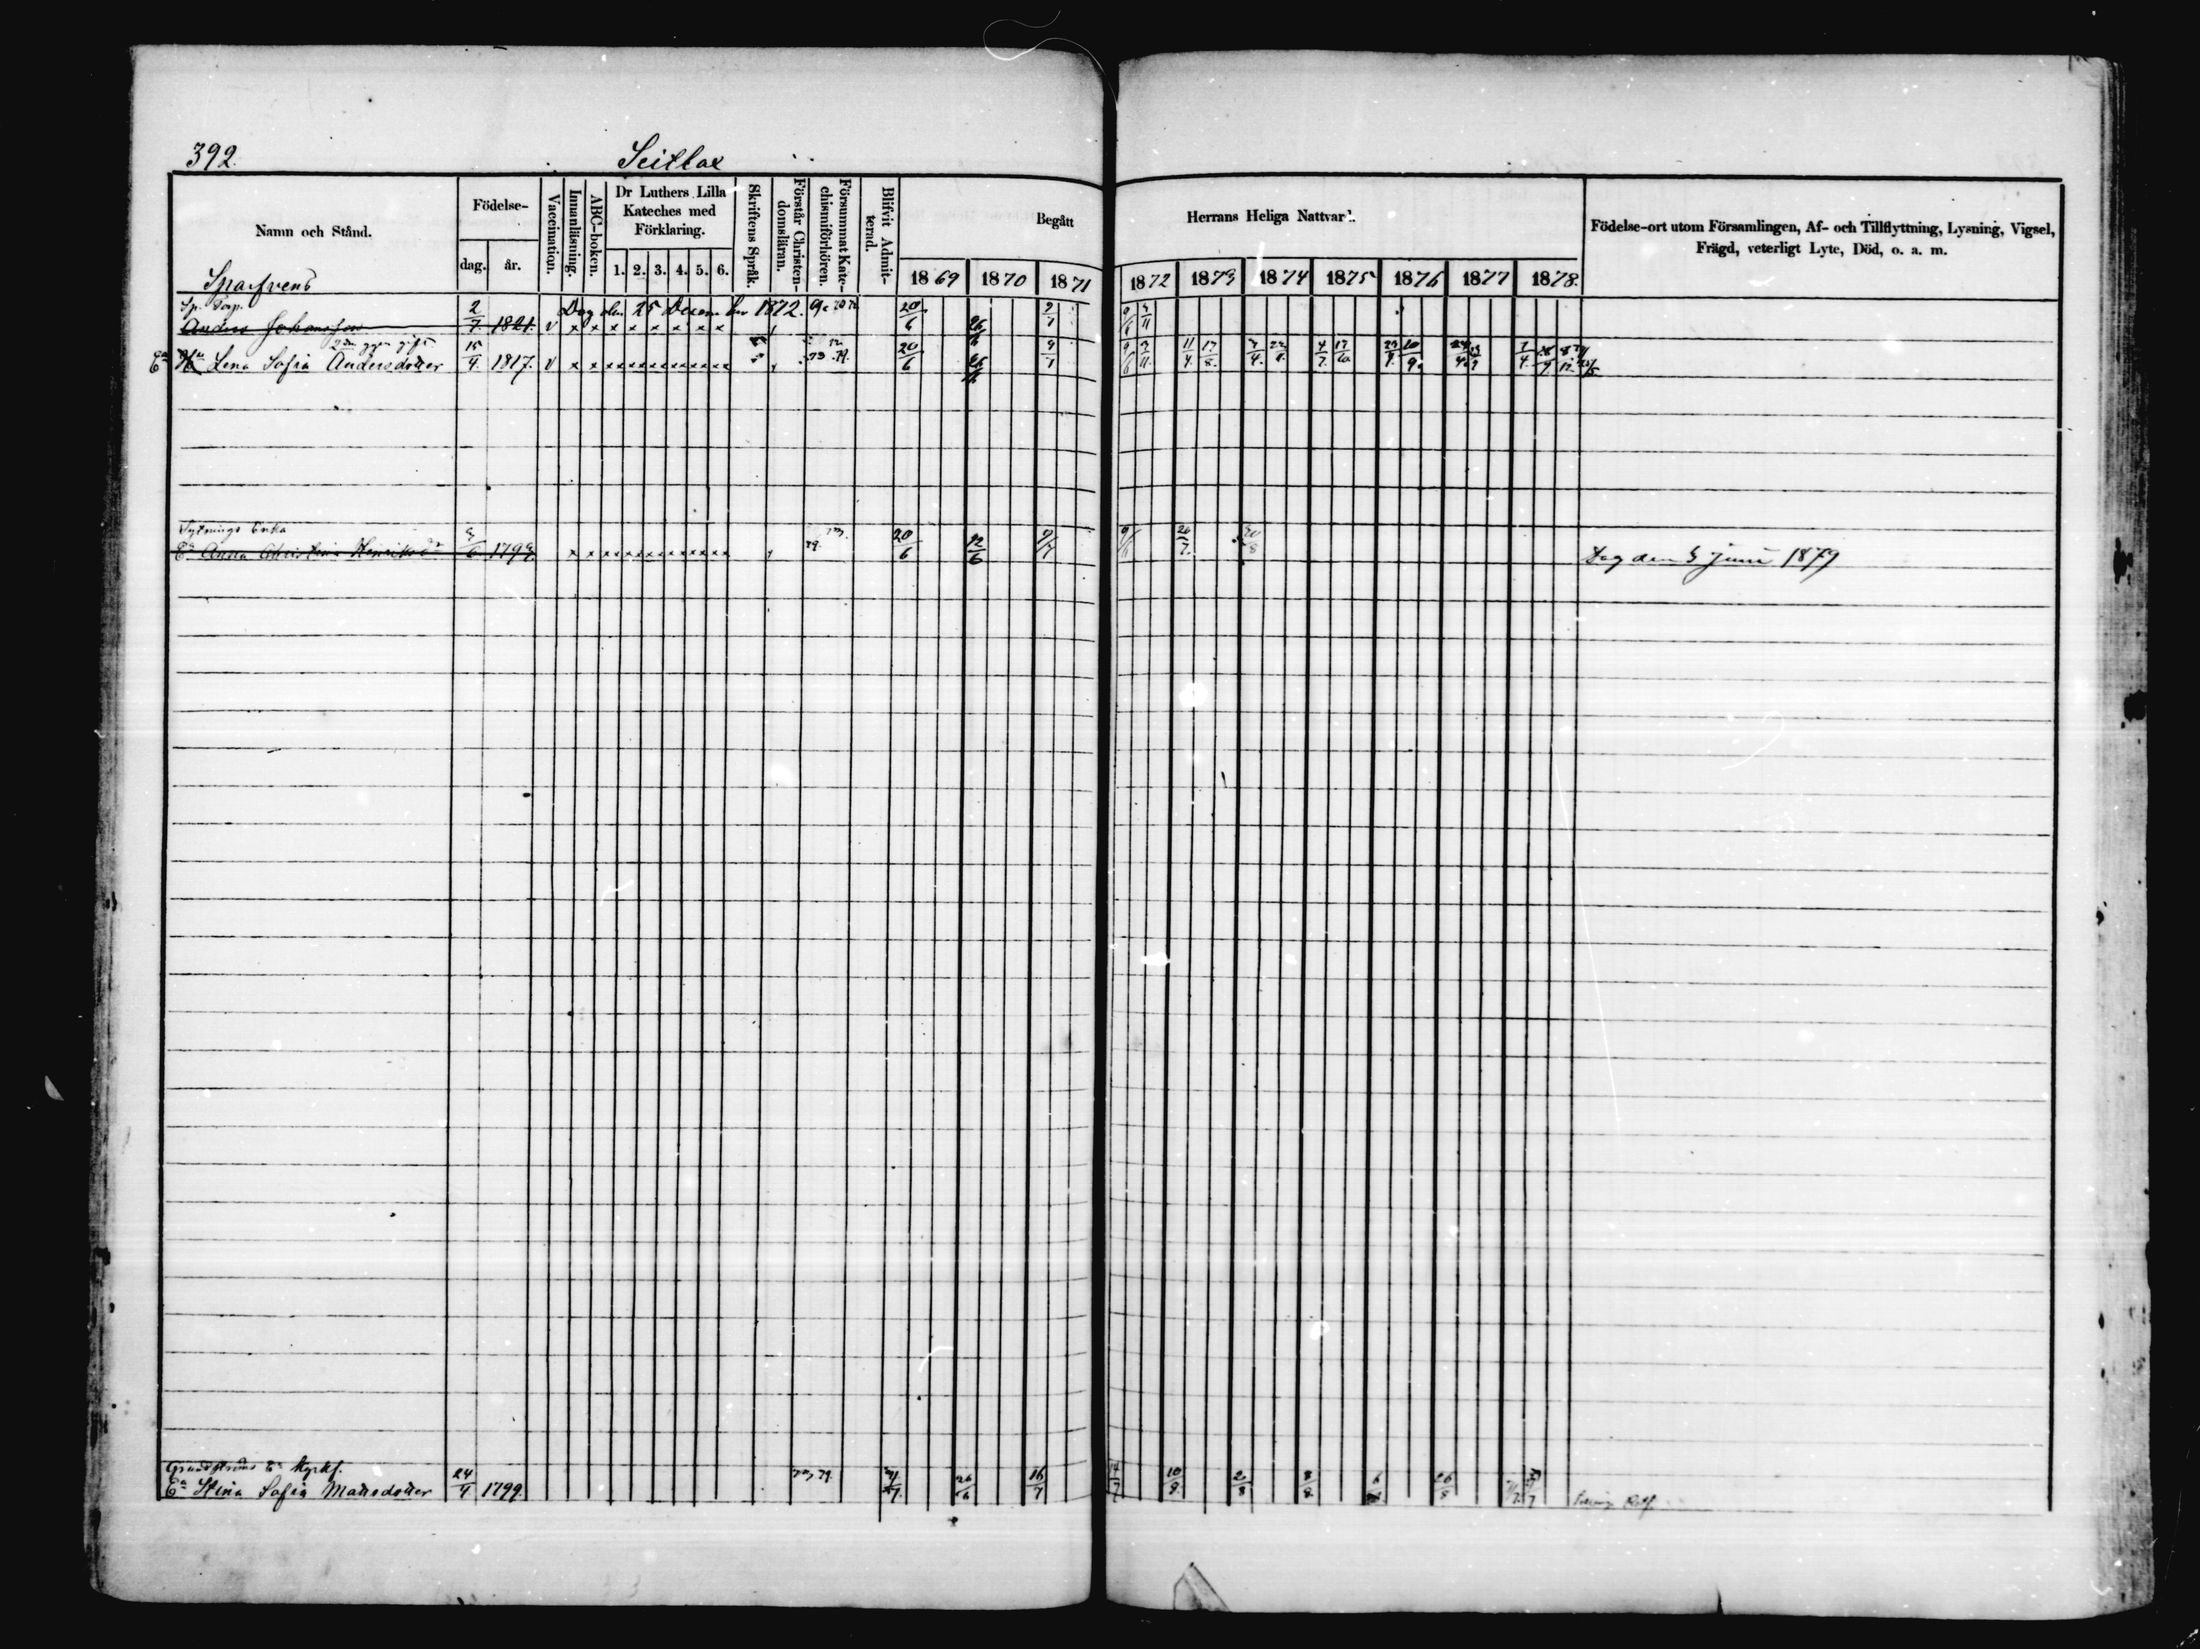 392.
Seitlax
Namn och Stånd.
Födelse-
dag.
år.
Vaccination.
Innanläsning.
ABC-boken.
Dr Luthers Lilla
Kateches med
Förklaring.
1. 2. 3. 4. 5. 6.
Skriftens Språk.
Förstår Christen-
domsläran.
Försummat Kate-
chismiförhören.
Blifvit Admit-
terad.
Begått
Herrans Heliga Nattvard.
1869 1870 1871 1872 1873 1874 1875 1876 1877 1878.
Födelse-ort utom Församlingen, Af- och Tillflyttning, Lysning, Vigsel,
Frägd, veterligt Lyte, Död, o. a. m.
Sparfvens
Sp. Torp.
Anders Johansson 2/7. 1821. v
Dog den 25 Decem ber 1872.
20/6 26/6 9/7
2dra ggn gift
Ea Hu Lena Sofia Andersdotter 15/4. 1817. v x x x x x x x x x x x x
20/6 26/6 9/7 9/6 3/11 11/4. 17/8.
Sytnings Enka
Ea Anna Christina Henriksdr 1799. x x x x x x x x x x x x
20/6 12/6 9/7 9/6 26/7. 30/8
Dog den 5 Junii 1879
Ea Stina Sofia Mattsdotter 24/4 1799.
26/6 16/7 14/7 10/8. 2/8 8/8. 6/8 26/8